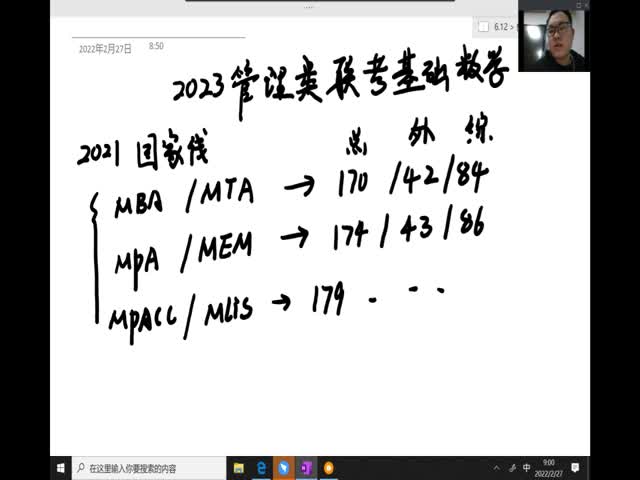 6.12 >
2022年2月27日 8:50
2023管理类联考基础数学
2021 国家线 总 外 综
MBA / MTA → 170 / 42 / 84
MPA / MEM → 174 / 43 / 86
MPACC / MLIS → 179 - - -
在这里输入你要搜索的内容
中
9:00
2022/2/27